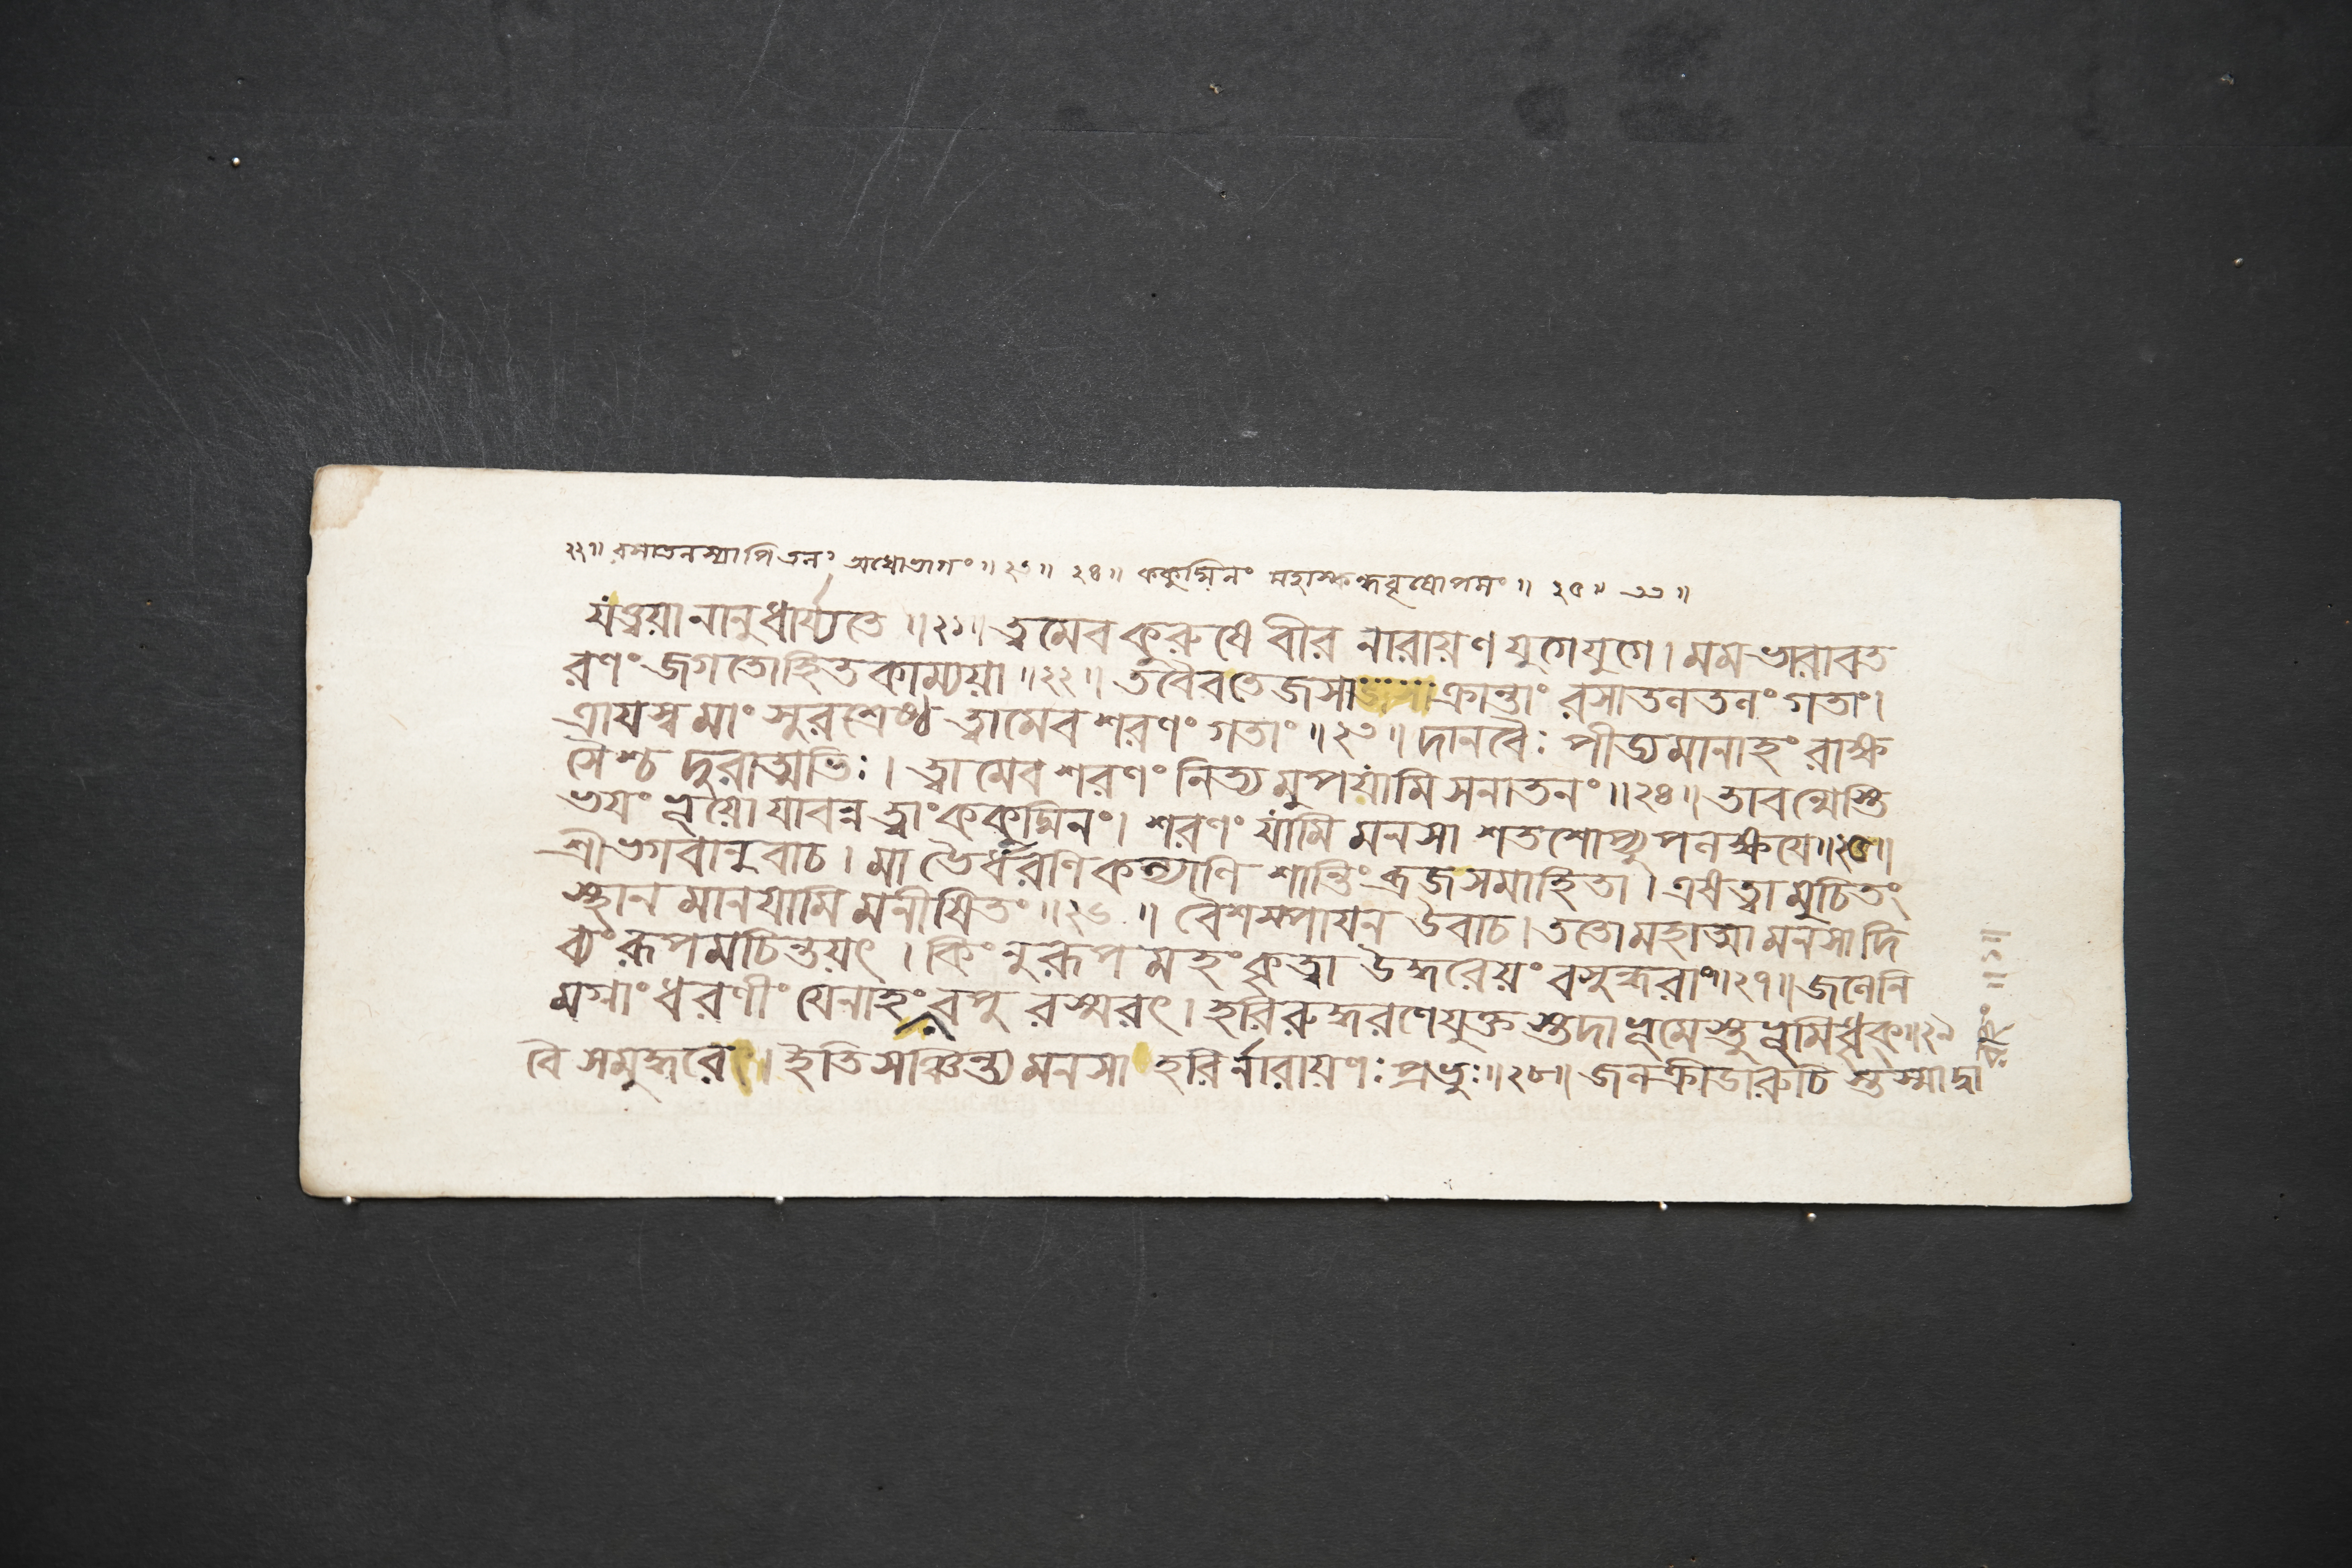 ২২॥ রসাতলস্যাপিতলং অধোভাগং॥২৩॥ ২৪॥ ককুদ্মিনং মহাস্কন্ধবৃষোপমং॥ ২৫॥ ৩৩॥
যংত্ত্বয়া নানুধার্য্যতে ॥২১॥ ত্বমেব কুরুষে বীর নারায়ণ যুগে যুগে। মম ভারাবত
রণং জগতোহিত কাম্যয়া ॥২২॥ তবৈব তেজসা ক্রান্তাং রসাতলতলং গতাং।
ত্রায়স্ব মাং সুরশ্রেষ্ঠ ত্বামেব শরণং গতাং ॥২৩॥ দানবৈঃ পীড্যমানাহং রাক্ষ
সৈশ্চ দুরাত্মভিঃ। ত্বামেব শরণং নিত্যমুপযামি সনাতনং॥২৪॥ তাবন্মেস্তি
ভয়ং ভূয়ো যাবন্ন ত্বাং ককুদ্মিনং। শরণং যামি মনসা শতশোপ্যুপলক্ষয়ে॥২৫॥
শ্রীভগবানুবাচ। মা ভৈর্ধরণি কল্যাণি শান্তিং ব্রজ সমাহিতা। এষ ত্বামুচিতং
স্থান মানয়ামি মনীষিতং॥২৬॥ বৈশম্পায়ন উবাচ। ততো মহাত্মা মনসা দি
ব্যং রূপমচিন্তয়ৎ। কিং নু রূপ মহং কৃত্বা উদ্ধরেয়ং বসুন্ধরাং॥২৭॥ জলেনি
মগ্নাং ধরণীং যেনাহং বৈ সমুদ্ধরে। ইতি সঞ্চিন্ত্য মনসা হরির্নারায়ণঃ প্রভুঃ॥২৮॥ জলক্রীডারুচি স্তস্মাদ্বা
বপু রস্মরৎ। হরিরুদ্ধরণে যুক্ত স্তদাভূমেস্তু ভূমিধৃক॥২৯